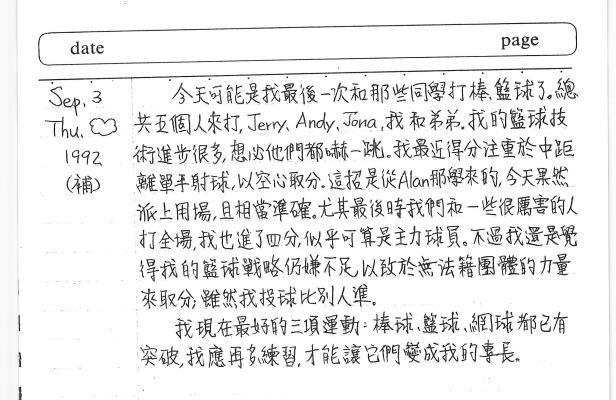 date page
Sep. 3 今天可能是我最後一次和那些同學打棒、籃球了。總
Thu. 共五個人來打, Jerry、Andy、Jona, 我和弟弟。我的籃球技
1992 術進步很多, 想必他們都嚇一跳。我最近得分注重於中距
(補) 離單手射球, 以空心取分。這招是從Alan那學來的, 今天果然
派上用場, 且相當準確。尤其最後時我們和一些很厲害的人
打全場, 我也進了四分, 似乎可算是主力球員。不過我還是覺
得我的籃球戰略仍嫌不足, 以致於無法籍團體的力量
來取分, 雖然我投球比別人準。
我現在最好的三項運動: 棒球、籃球、網球都已有
突破, 我應再多練習, 才能讓它們變成我的專長。